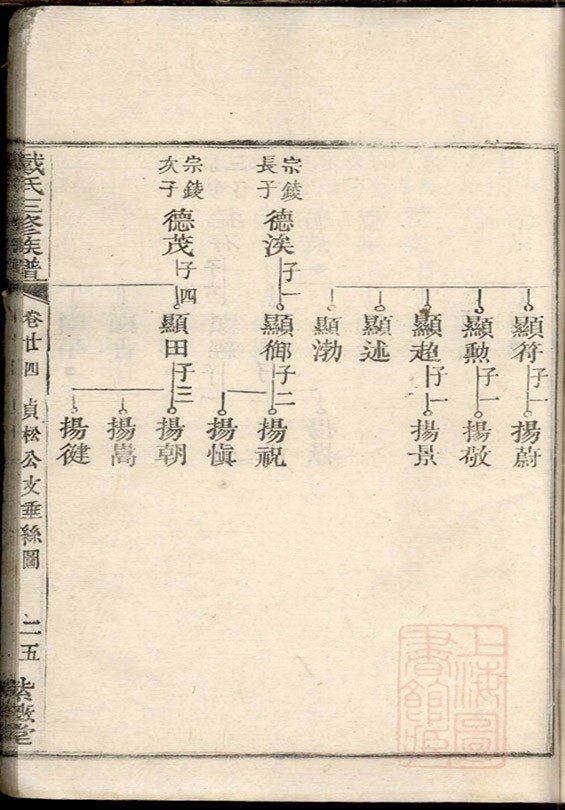 顯符子一
揚蔚
顯勲子一
揚敬
顯超子一
揚景
顯述
顯渤
宗錂
長子
德涘子一
顯御子二
揚祝
揚愼
宗錂
次子
德茂子四
顯田子三
揚朝
揚嵩
揚健
戴氏三修族譜
卷廿四
貞松公支垂絲圖
二五
紫微堂
上海圖書館藏